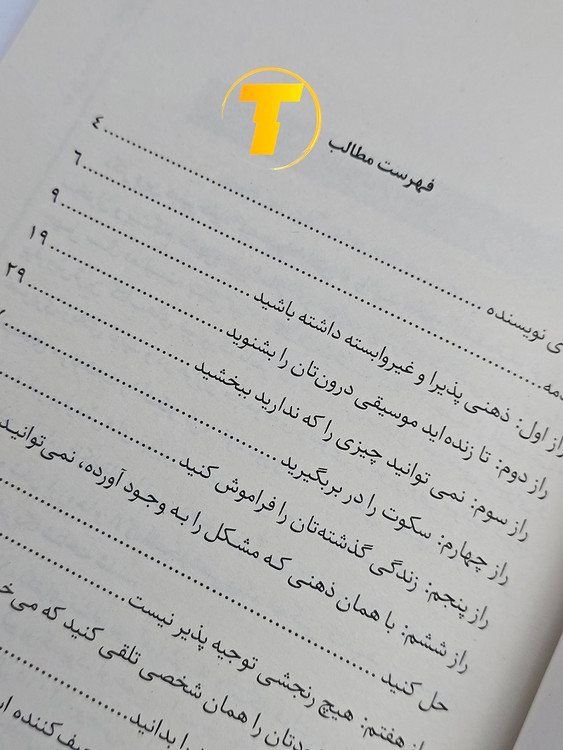 T
فهرست مطالب
ی نویسنده ........ ٤
........ ٦
راز اول: ذهنی پذیرا و غیروابسته داشته باشید ........ ٩
راز دوم: تا زنده‌اید موسیقی درون‌تان را بشنوید ........ ١٩
راز سوم: نمی توانید چیزی را که ندارید ببخشید ........ ٢٩
راز چهارم: سکوت را در بربگیرید ........
راز پنجم: زندگی گذشته‌تان را فراموش کنید ........
راز ششم: با همان ذهنی که مشکل را به وجود آورده، نمی‌توانید
حل کنید ........
راز هفتم: هیچ رنجشی توجیه پذیر نیست ........
همان شخصی تلقی کنید که
را بدانید ........